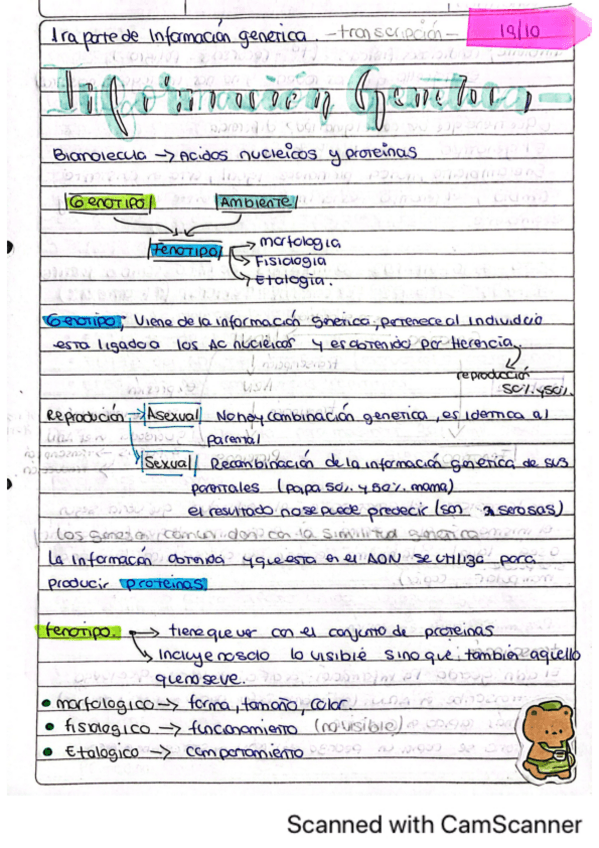 1ra parte de Información genetica. -transcripción- 19/10
Información Genetica
Biomolecula → Acidos nucleicos y proteinas
GENOTIPO AMBIENTE
FENOTIPO → morfologia
→ Fisiologia
→ Etalogia.
Genotipo; Viene de la información genetica, pertenece al individuo
esta ligado a los AC nucleicos y es obtenido por Herencia.
reproducción
50% y 50%.
Reprodución → Asexual No hay combinación genetica, es identica al
parental
Sexual Recombinación de la información genetica de sus
parentales (papa 50% y 50% mama)
el resultado no se puede predecir (son
Los genes en comun dan con la similitud genetica
La informacón obtenida y que esta en el ADN se utiliza para
producir proteinas
Fenotipo. → tiene que ver con el conjunto de proteinas
→ Incluye no solo lo visible sino que tambien aquello
que no se ve.
• morfologico → forma, tamaño, color.
• fisiologico → funcionamiento (no visible)
• Etalogico → comportamiento
Scanned with CamScanner